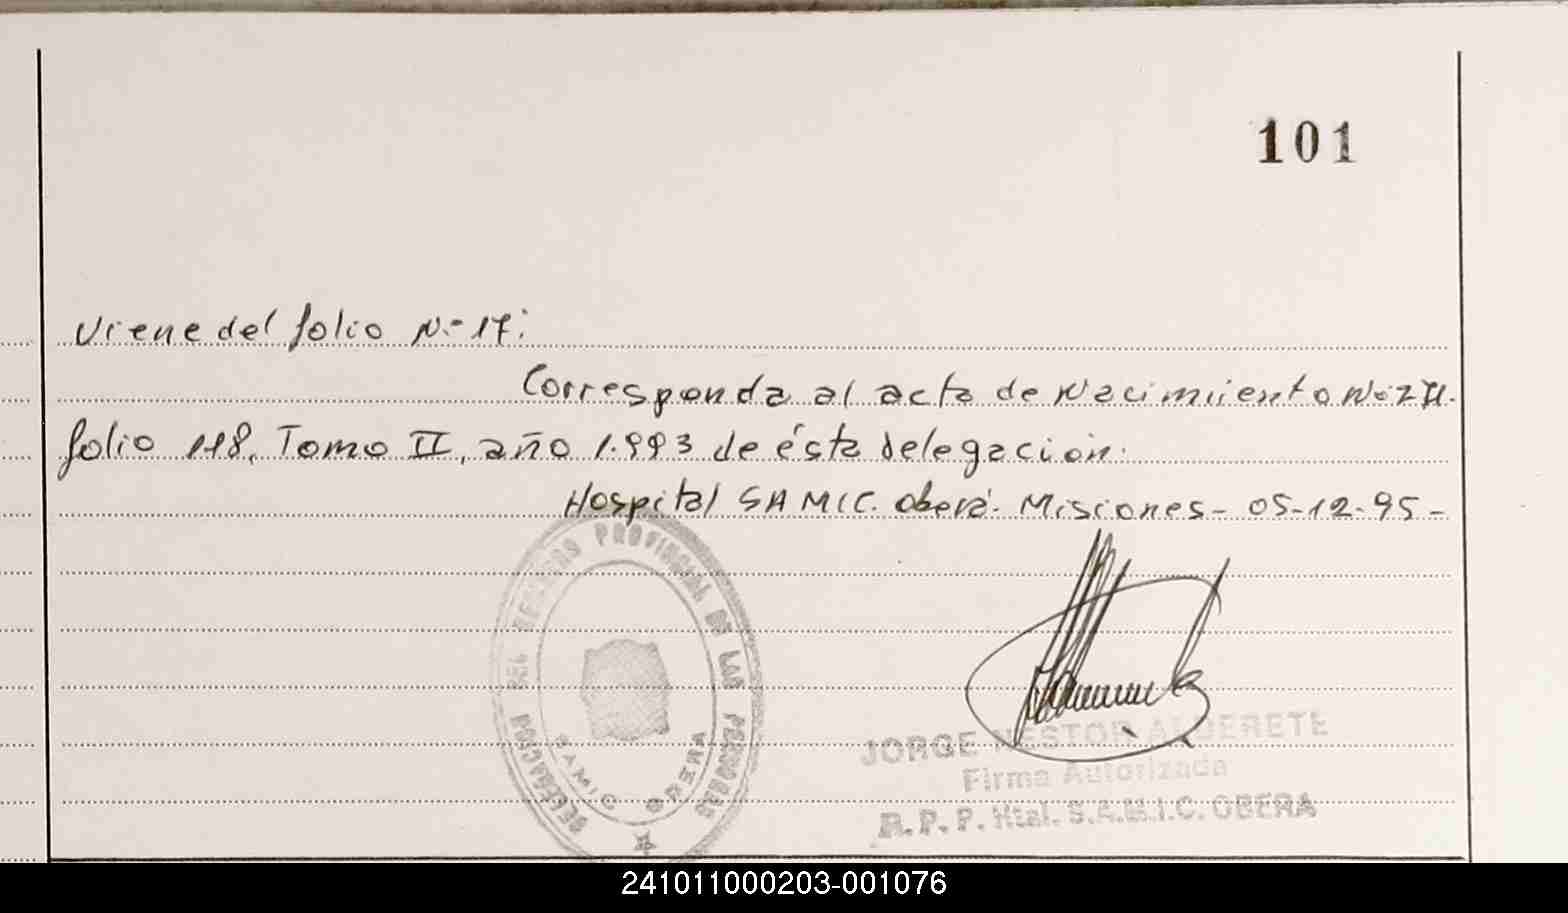 101
Viene del folio Nº 17:
Corresponda al acta de Nacimiento Nº
folio 118, Tomo II, año 1.993 de ésta delegación.
Hospital SAMIC. Oberá. Misiones - 05-12-95-
DELEGACION DEL REGISTRO PROVINCIAL DE LAS PERSONAS
SAMIC OBERA
JORGE NESTOR ALDERETE
Firma Autorizada
R.P.P. Htal. S.A.M.I.C. OBERA
241011000203-001076